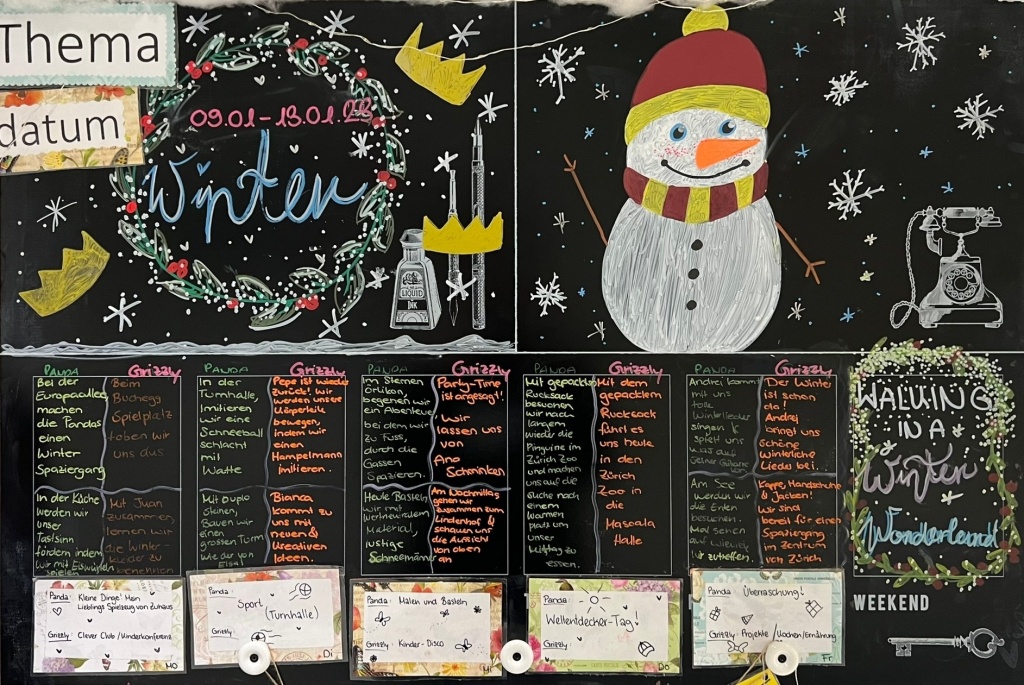 Thema
datum
09.01-13.01.23
Winter
LIQUID
INK
PANDA
Grizzly
Bei der
Europaallee,
machen
die Pandas
einen
Winter
Spaziergang
Beim
Buchegg
Spielplatz
toben wir
uns aus
In der Küche
werden wir
unser
Tastsinn
fördern indem
wir mit Eiswürfeln
spielen
Mit Juan
zusammen
lernen wir
die Winter-
kennenlernen
PANDA
Grizzly
In der
Turnhalle,
imitieren
wir eine
Schneeball
schlacht
mit
Watte
Pepe ist wieder
zurück! wir
werden unsere
Körperteile
bewegen,
indem wir
einen
Hampelmann
imitieren.
Mit Duplo
steinen,
Bauen wir
einen
grossen Turm
wie der von
Elsa!
Bianca
kommt zu
uns mit
neuen &
kreativen
Ideen.
PANDA
Grizzly
Im Sternen
Örlikon,
begehen wir
ein Abenteuer
bei dem wir
zu Fuss,
durch die
Gassen
Spazieren.
Party-Time
ist angesagt!
Wir
lassen uns
von
Ana
Schminken
Heute Basteln
wir mit
wertneutralem
Material,
lustige
Schneemänner
Am Nachmittag
gehen wir
zusammen zum
Lindenhof &
schauen uns
die Aussicht
von oben
an
PANDA
Grizzly
Mit gepackten
Rucksack
besuchen
wir nach
langem
wieder die
Pinguine im
Zürich Zoo
und machen
uns auf die
Suche nach
einem
warmen
platz um
unser
Lunch zu
essen.
Mit dem
gepacktem
Rucksack
führt es
uns heute
in den
Zürich
Zoo in
die
Masoala
Halle
PANDA
Grizzly
Andrei kommt
mit uns
tolle
Winterlieder
singen &
spielt uns
was auf
seiner Gitarre
Der Winter
ist schon
da!
Andrei
bringt uns
schöne
Winterliche
Lieder bei..
Am See
werden wir
die Enten
besuchen.
Mal sehen
auf wieviel
wir zutreffen.
Kappe, Handschuhe
& Jacken!
Wir sind
bereit für einen
Spaziergang
im Zentrum
von Zürich
WALKING
IN A
Winter
Wonderland!
WEEKEND
Panda: Kleine Dinge! Mein
Lieblings Spielzeug von Zuhaus
Grizzly: Clever Club / Kinderkonferenz
Mo
Panda:
Sport
(Turnhalle)
Grizzly:
Di
Panda: Malen und Basteln
Grizzly: Kinder-Disco
Mi
Panda:
Weltentdecker-Tag!
Grizzly:
Do
Panda: Überraschung!
Grizzly: Projekte / Kochen / Ernährung
Fr